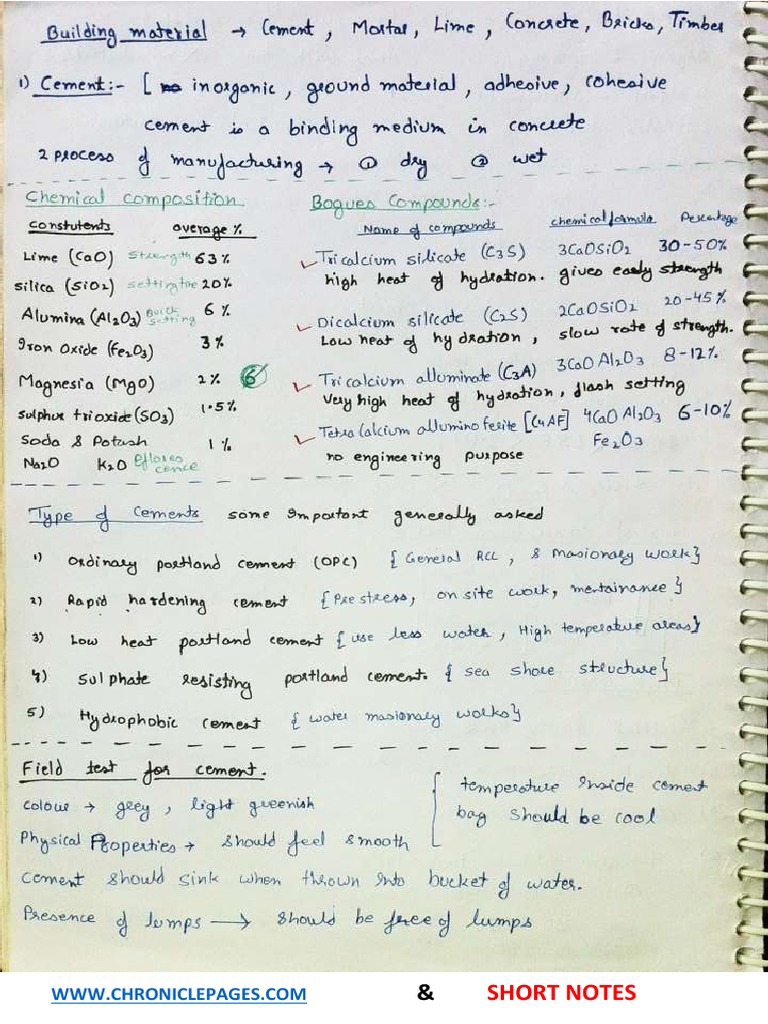 Building material → Cement, Mortar, Lime, Concrete, Bricks, Timber
1) Cement:- [ inorganic, ground material, adhesive, cohesive
cement is a binding medium in concrete
2 process of manufacturing → @ dry @ wet
Chemical composition
Constutents average %
Lime (CaO) Strength 63%
silica (SiO2) setting time 20%
Alumina (Al2O3) Quick setting 6%
Iron Oxide (Fe2O3) 3%
Magnesia (MgO) 2% 6
Sulphur trioxide (SO3) 1.5%
Soda & Potash 1%
Na2O K2O eflores cence
Bogues Compounds:-
Name of compounds chemical formula Pecentage
✓ Tricalcium silicate (C3S) 3CaOSiO2 30-50%
high heat of hydration. gives early strength
✓ Dicalcium silicate (C2S) 2CaOSiO2 20-45%
Low heat of hydration, slow rate of strength.
✓ Tricalcium alluminate (C3A) 3CaO Al2O3 8-12%
Very high heat of hydration, flash setting
✓ Tetra Calcium allumino ferite [C4AF] 4CaO Al2O3 6-10%
Fe2O3
no engineering purpose
Type of Cements some important generally asked
1) Ordinary portland cement (OPC) { General RCC, & Masionary work}
2) Rapid hardening cement {Prestress, on site work, mentainance}
3) Low heat portland cement {use less water, High temperature areas}
4) Sulphate resisting portland cement. { sea shore structure}
5) Hydrophobic cement {water masionary works}
Field test for cement.
Colour → grey, light greenish
Physical Properties → should feel smooth
temperature inside cement
bag should be cool
Cement should sink when thrown into bucket of water.
Presence of lumps → should be free of lumps
WWW.CHRONICLEPAGES.COM & SHORT NOTES